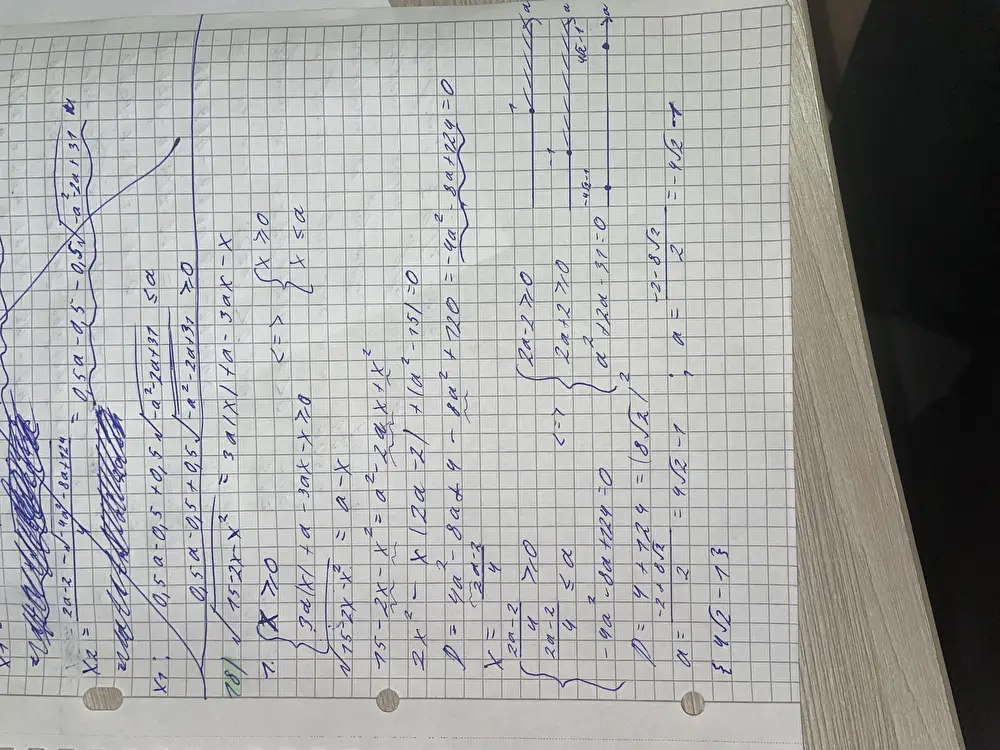 x₂ = (2a-2 - √(-4a²-8a+124))/4 = 0,5a - 0,5 - 0,5√(-a²-2a+31)
x₁: 0,5a - 0,5 + 0,5√(-a²-2a+31) ≤ a
0,5a - 0,5 + 0,5√(-a²-2a+31) ≥ 0
18) √(15-2x-x²) = 3a|x| + a - 3ax - x
1. { x ≥ 0
3a|x| + a - 3ax - x ≥ 0 <=> { x ≥ 0
x ≤ a
√(15-2x-x²) = a - x
15 - 2x - x² = a² - 2ax + x²
2x² - x(2a-2) + (a²-15) = 0
D = 4a² - 8a + 4 - 8a² + 120 = -4a² - 8a + 124 = 0
x = (2a-2)/4
{ (2a-2)/4 ≥ 0
(2a-2)/4 ≤ a
-4a² - 8a + 124 = 0 <=> { 2a-2 ≥ 0
2a+2 ≥ 0
a² + 2a - 31 = 0
1 a
-1 a
-4√2-1 4√2-1 a
D = 4 + 124 = (8√2)²
a = (-2+8√2)/2 = 4√2 - 1 ; a = (-2-8√2)/2 = -4√2 - 1
{4√2 - 1}